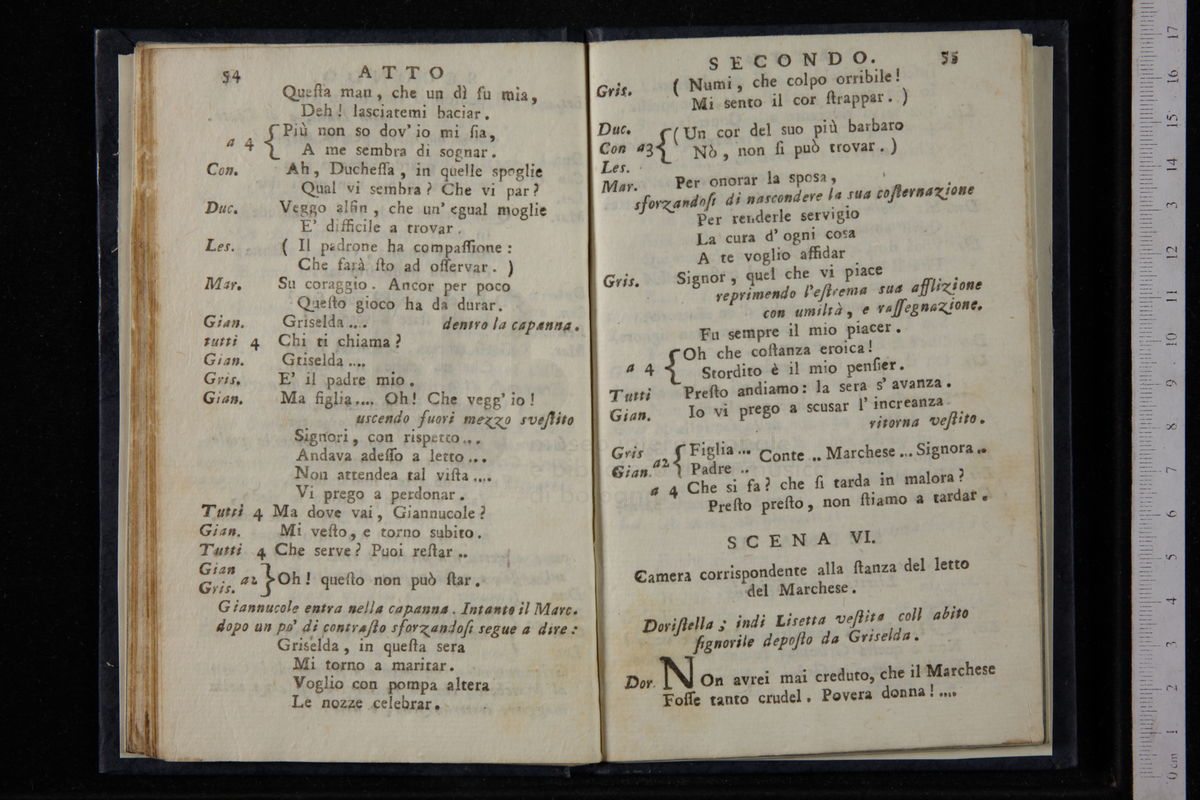 54 ATTO
Questa man, che un dì fu mia,
Deh! lasciatemi baciar.
a 4 { Più non so dov' io mi sia,
A me sembra di sognar.
Con. Ah, Duchessa, in quelle spoglie
Qual vi sembra? Che vi par?
Duc. Veggo alfin, che un' egual moglie
E' difficile a trovar.
Les. ( Il padrone ha compassione:
Che farà sto ad osservar. )
Mar. Su coraggio. Ancor per poco
Questo gioco ha da durar.
Gian. Griselda .... dentro la capanna.
tutti 4 Chi ti chiama?
Gian. Griselda ....
Gris. E' il padre mio.
Gian. Ma figlia.... Oh! Che vegg' io!
uscendo fuori mezzo svestito
Signori, con rispetto...
Andava adesso a letto...
Non attendea tal vista ....
Vi prego a perdonar.
Tutti 4 Ma dove vai, Giannucole?
Gian. Mi vesto, e torno subito.
Tutti 4 Che serve? Puoi restar ..
Gian
Gris. a2 } Oh! questo non può star.
Giannucole entra nella capanna. Intanto il Marc.
dopo un po' di contrasto sforzandosi segue a dire:
Griselda, in questa sera
Mi torno a maritar.
Voglio con pompa altera
Le nozze celebrar.
SECONDO. 55
Gris. ( Numi, che colpo orribile!
Mi sento il cor strappar. )
Duc. { ( Un cor del suo più barbaro
Con a3 Nò, non si può trovar. )
Les.
Mar. Per onorar la sposa,
sforzandosi di nascondere la sua costernazione
Per renderle servigio
La cura d' ogni cosa
A te voglio affidar
Gris. Signor, quel che vi piace
reprimendo l'estrema sua afflizione
con umiltà, e rassegnazione.
Fu sempre il mio piacer.
a 4 { Oh che costanza eroica!
Stordito è il mio pensier.
Tutti Presto andiamo: la sera s' avanza.
Gian. Io vi prego a scusar l' increanza.
ritorna vestito.
Gris a2 { Figlia ... Conte .. Marchese ... Signora ..
Gian. Padre ..
a 4 Che si fa? che si tarda in malora?
Presto presto, non stiamo a tardar.
SCENA VI.
Camera corrispondente alla stanza del letto
del Marchese.
Doristella; indi Lisetta vestita coll abito
signorile deposto da Griselda.
Dor. NOn avrei mai creduto, che il Marchese
Fosse tanto crudel. Povera donna! ....
0 cm 1 2 3 4 5 6 7 8 9 10 11 12 13 14 15 16 17